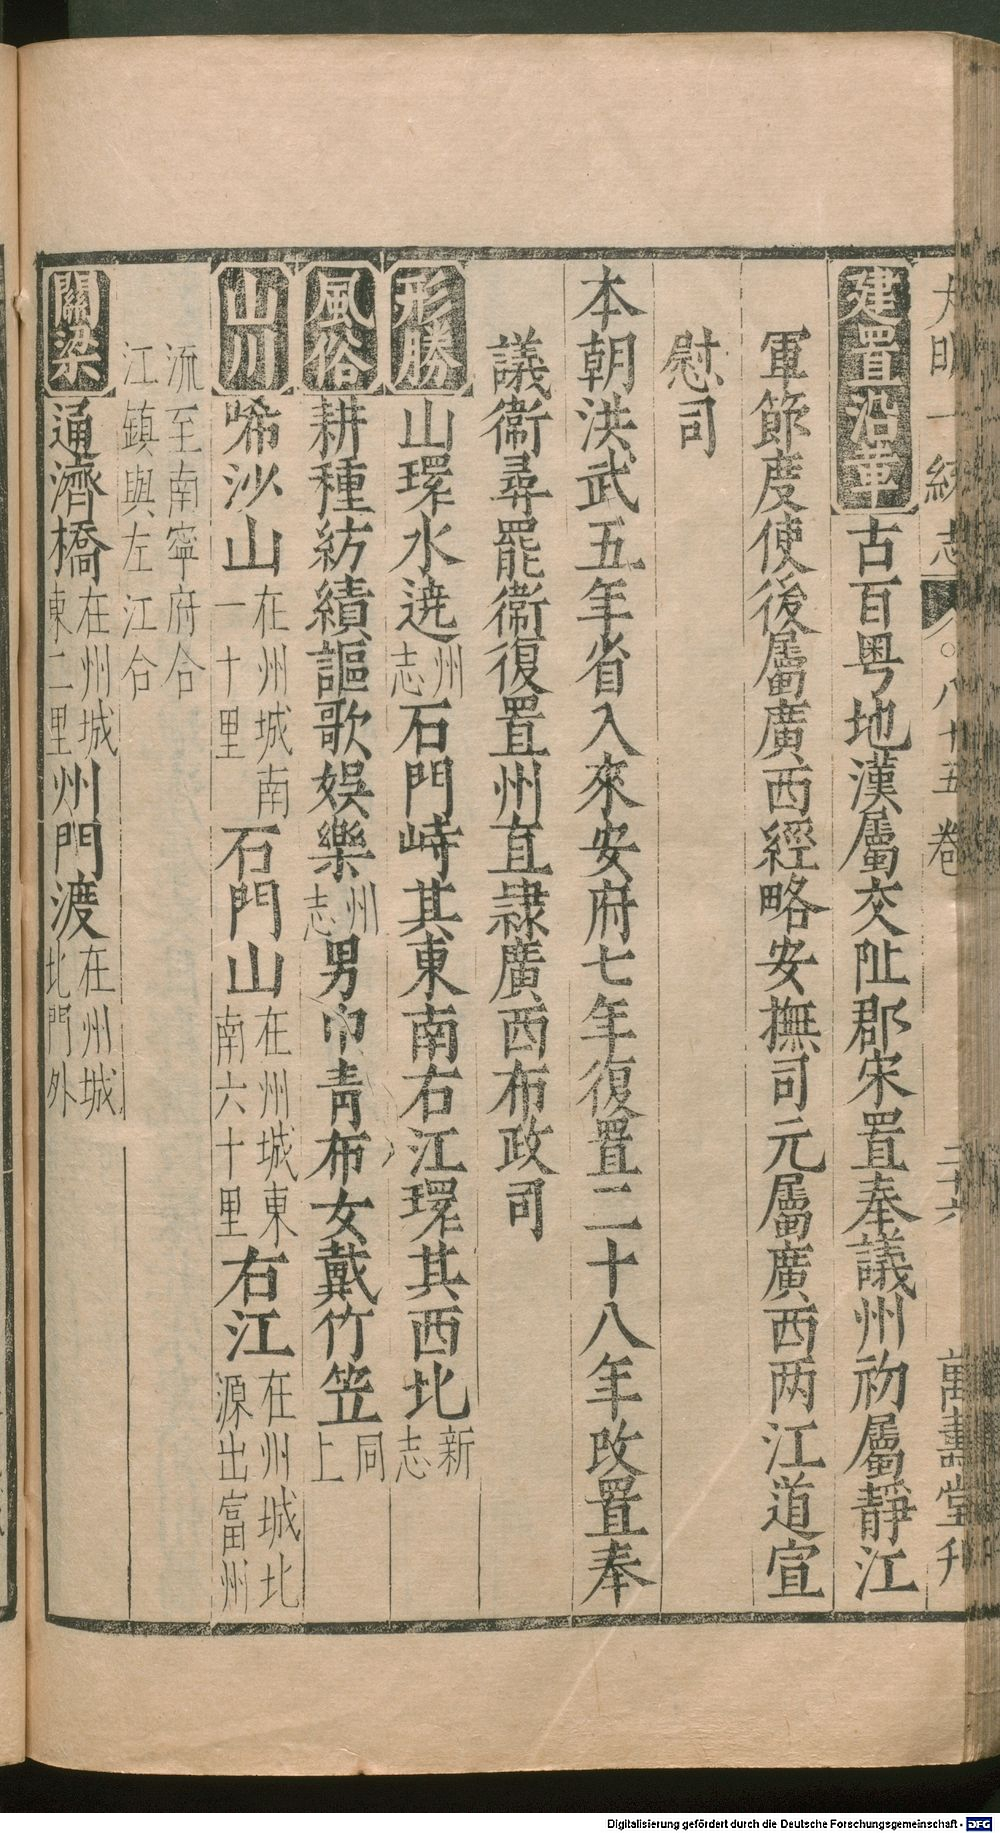 大明一統志 ○八十五卷 二十六 萬壽堂刊
建置沿革 古百粤地漢屬交阯郡宋置奉議州初屬靜江
軍節度使後屬廣西經略安撫司元屬廣西两江道宣
慰司
本朝洪武五年省入來安府七年復置二十八年改置奉
議衛尋罷衛復置州直隸廣西布政司
形勝 山環水遶州志石門峙其東南右江環其西北新志
風俗 耕種紡績謳歌娯樂州志男巾青布女戴竹笠同上
山川 唏沙山在州城南一十里石門山在州城東南六十里右江在州城北源出富州
流至南寧府合江鎮與左江合
關梁 通濟橋在州城東二里州門渡在州城北門外
Digitalisierung gefördert durch die Deutsche Forschungsgemeinschaft - DFG